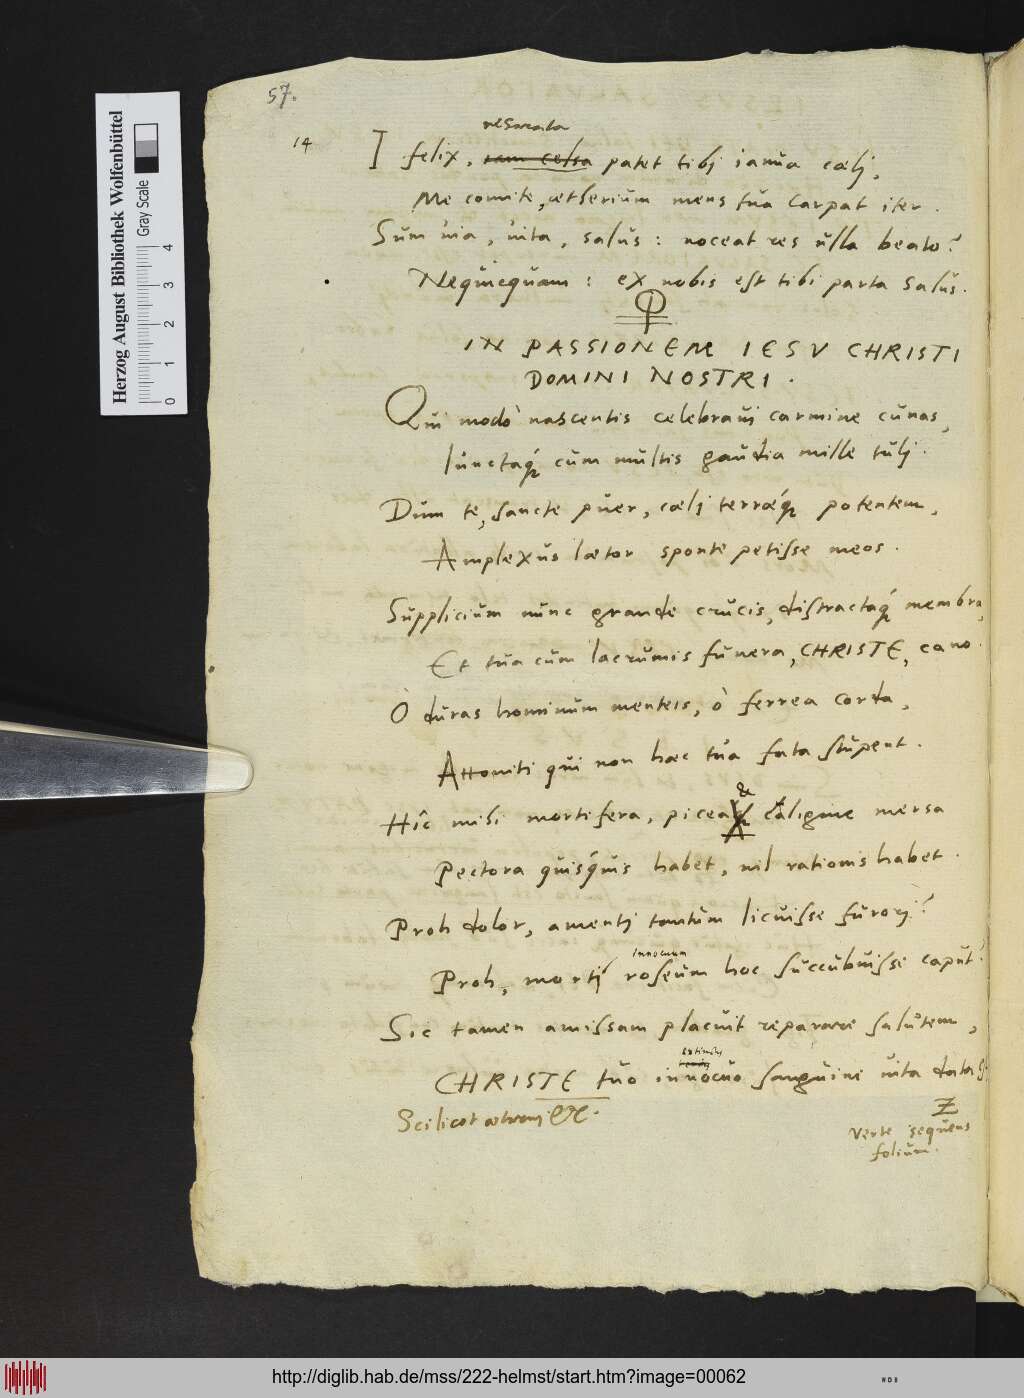 57.
14
reserata
I felix, iam celsa patet tibj ianua cælj,
Me comite, ætherium mens tua carpat iter.
Sum uia, uita, salus: noceat res ulla beato?
Nequicquam: ex nobis est tibi parta salus.
IN PASSIONEM IESV CHRISTI
DOMINI NOSTRI.
Qui modò nascentis celebraui carmine cunas,
Iunctaq́ cum multis gaudia mille tulj.
Dum te, sancte puer, cælj terræq́ potentem,
Amplexus lætor sponte petisse meos.
Supplicium nunc grande crucis, distractaq́ membra,
Et tua cum lacrumis funera, CHRISTE, cano.
O duras hominum menteis, ò ferrea corda,
Attoniti qui non hæc tua fata stupent.
&
Hîc mihi mortifera, picea caligine mersa
Pectora quisquis habet, nil rationis habet.
Proh dolor, amentj tantum licuisse furorj?
innocuum
Proh, mortj roseum hoc succubuisse caput?
Sic tamen amissam placuit reparare salutem,
CHRISTE tuo innocuo sanguine uita data
Scilicet æternj &c.
Z
Verte sequens
folium.
Herzog August Bibliothek Wolfenbüttel
Gray Scale
0 1 2 3 4
http://diglib.hab.de/mss/222-helmst/start.htm?image=00062